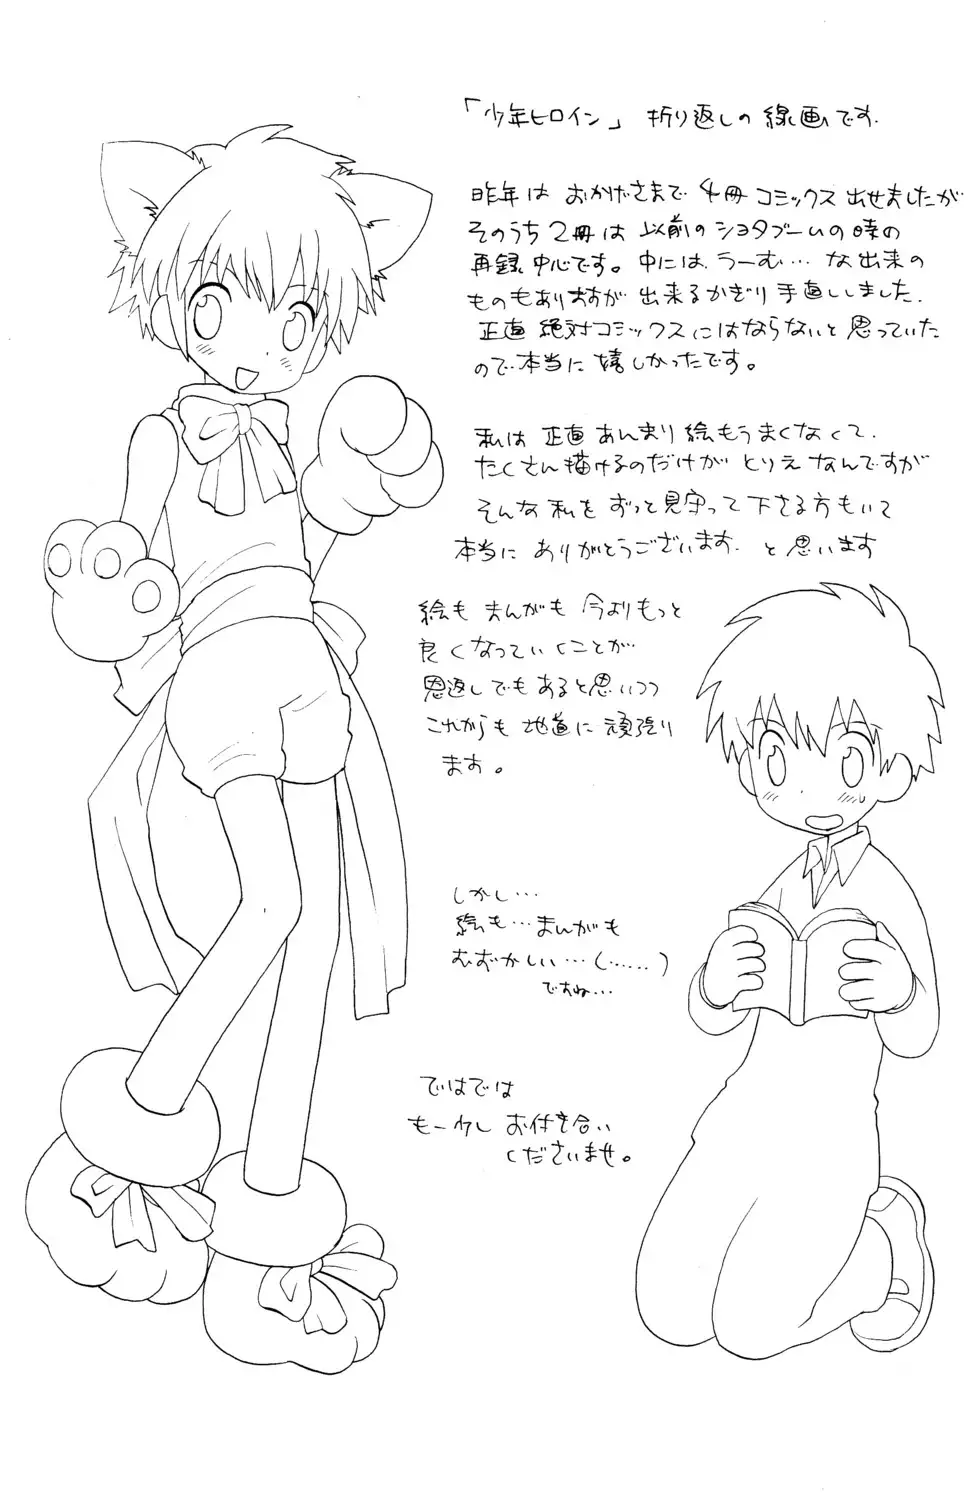 「少年ヒロイン」 折り返しの線画です.
昨年は おかげさまで 4冊 コミックス 出せましたが
そのうち2冊は 以前のショタブームの時の
再録中心です。中には、うーむ… な出来の
ものもありますが 出来るかぎり 手直ししました.
正直 絶対コミックスにはならないと思っていた
ので本当に 嬉しかったです。
私は 正直 あんまり 絵もうまくなくて、
たくさん描けるのだけが とりえ なんですが
そんな 私を ずっと見守って下さる方もいて
本当に ありがとうございます. と思います
絵も まんがも 今よりもっと
良くなっていくことが
恩返しでもあると思いつつ
これからも 地道に 頑張り
ます。
しかし…
絵も…まんがも
むずかしい…(……)
ですね…
ではでは
もー少し お付き合い
くださいませ。